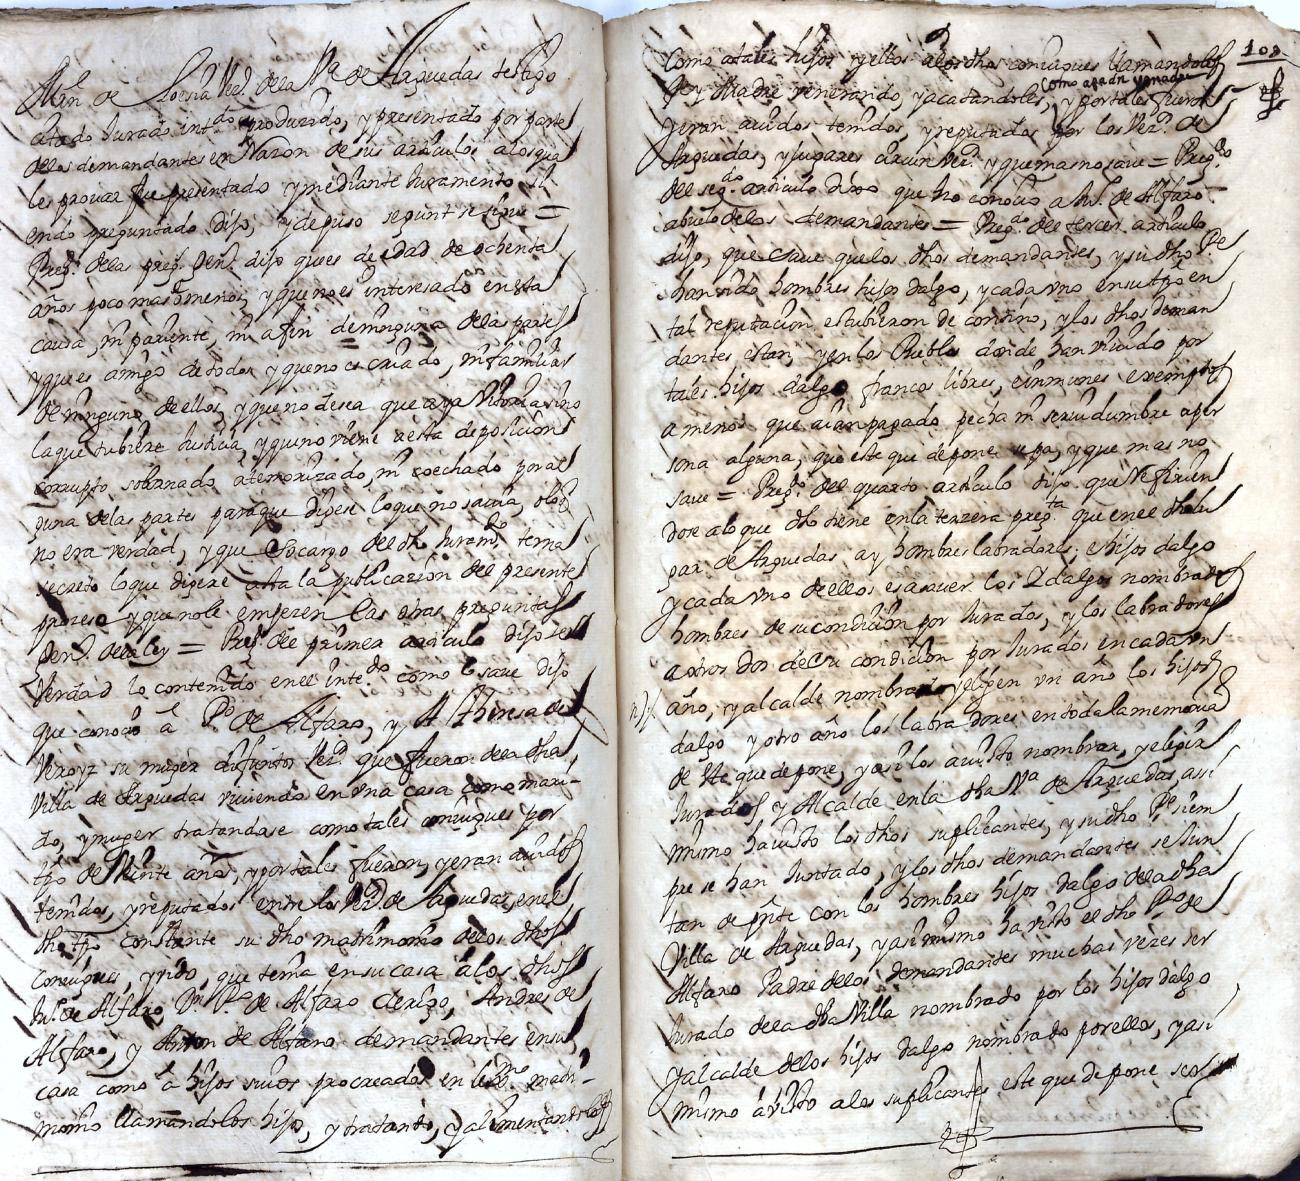 de Loersa Vez.º de la V.ª de Arguedas testigo
atado Jurado int.do produzido, y presentado por parte
de los demandantes en Razon de sus articulos a los qua
les provar fue presentado y mediante Juramento si
endo preguntado dijo, y depuso segunt se sigue =
Preg.do de las preg.s Gen.s dijo que es de edad de ochenta
años poco mas o menos, y que no es interesado en esta
causa, ni pariente, ni afin de ninguna de las partes
y que es amigo de todos, y que no es criado, ni familiar
de ninguno de ellos, y que no desea que aya Vitoria sino
la que tubiere Justicia, y que no viene a esta deposicion
corrupto, sobornado, atemorizado, ni coechado por al
guna de las partes para que dijese lo que no savia, o lo q
no era verdad, y que so cargo del dho Juram.to terna
secreto lo que dijere asta la publicazion del presente
prozeso y que no le empezen las otras preguntas
Gen.s de la ley = Preg.do del primer articulo dijo ser
Verdad lo contenido en el inte.do como lo save dijo
que conozio a P.º de Alfaro, y a Theresa de
Veroyz su muger difuntos Vez.s que fueron de la dha
Villa de Arguedas viviendo en una casa como mari-
do, y muger tratandose como tales conjuges por
tpo de Veinte años, y por tales fueron, y eran avidos
tenidos, y reputados entre los Vez.s de Arguedas, en el
dho tpo constante su dho matrimonio de los dhos
conjuges, y vido, que tenia en su casa a los dhos
Ju.º de Alfaro, D.n P.º de Alfaro Clerigo, Andres de
Alfaro, y Anton de Alfaro demandantes en su
casa como a hijos suios procreados en le.mo matri-
monio llamandolos hijos, y tratando, y alimentandolos
109
Como a tales hijos y ellos a los dhos conjuges llamandoles
P.e y Madre venerando, y acatandoles, y por tales fueron
como a padre y madre
y eran avidos tenidos, y reputados por los Vez.s de
Arguedas, y lugares circun Vez.s y que mas no save = Preg.do
del seg.do articulo dixo que no conozio a Ju.º de Alfaro
abuelo de los demandantes = Preg.do del tercer articulo
dijo, que save que los dhos demandantes, y su dho P.e
han sido hombres hijos dalgo, y cada uno en su tpo en
tal reputacion estubieron de contino, y los dhos deman
dantes estan, y en los Pueblos donde han vivido por
tales hijos dalgo francos libres, e inmunes exemptos
a menos que aian pagado pecha ni servidumbre a per
sona alguna, que este que depone sepa, y que mas no
save = Preg.do del quarto articulo dijo que Refirien
dose a lo que dho tiene en la terzera preg.ta que en el dho lu
gar de Arguedas ay hombres labradores, e hijos dalgo
y cada uno de ellos es a saver los Ydalgos nombrados
hombres de su condicion por Jurados, y los labradores
a otros dos de su condicion por Jurados en cada un
año, y alcalde nombrando y elijen un año los hijos
dalgo y otro año los labradores en toda la memoria
de este que depone, y asi los a visto nombrar, y elegir
Jurados y Alcalde en la dha V.ª de Arguedas, assi
mismo ha visto los dhos suplicantes, y su dho P.e siem
pre se han Juntado, y los dhos demandantes se Jun
tan de p.nte con los hombres hijos dalgo de la dha
Villa de Arguedas, y asi mismo ha visto el dho P.º de
Alfaro Padre de los demandantes muchas vezes ser
Jurado de la dha Villa nombrado por los hijos dalgo
y alcalde de los hijos dalgo nombrado por ellos, y asi
mismo a visto a los suplicantes este que depone ser